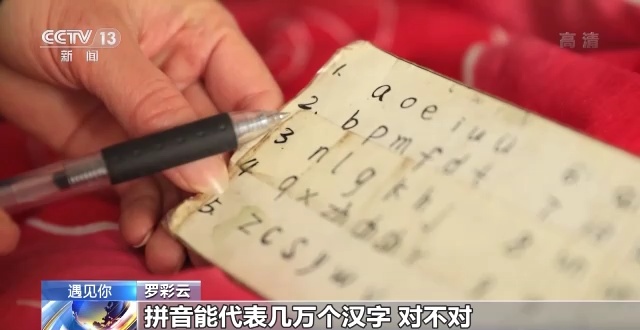 CCTV 13
新闻
高清
1. a o e i u ü
2. b p m f d t
3. n l g k h j
4 q x zh ch sh r
5. z c s y w
遇见你 罗彩云
拼音能代表几万个汉字 对不对